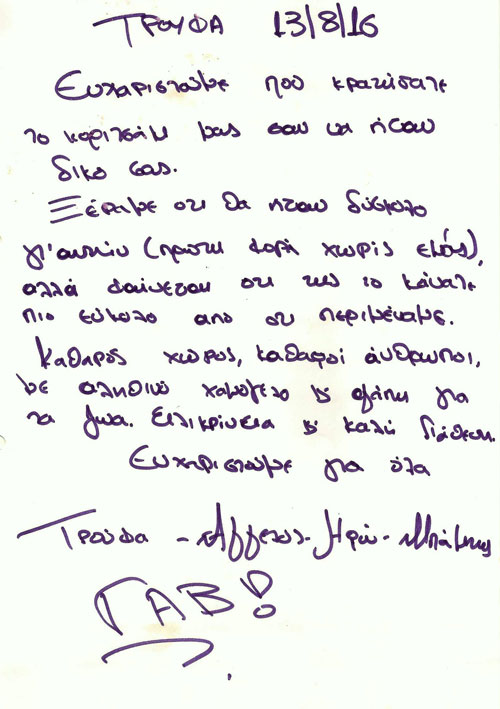 ΤΡΟΥΦΑ 13/8/16
Ευχαριστούμε που κρατήσατε
το κοριτσάκι μας σαν να ήταν
δικό σας.
Ξέραμε οτι θα ήταν δύσκολο
γι'αυτήν (πρώτη φορά χωρίς εμάς),
αλλά φαίνεται οτι της το κάνατε
πιο εύκολο απο οτι περιμέναμε.
Καθαρός χώρος, καθαροί άνθρωποι,
με αληθινό χαμόγελο & αγάπη για
τα ζώα. Ειλικρίνεια & καλή διάθεση.
Ευχαριστούμε για όλα
Τρούφα - Άγγελος - Ηρώ -
ΓΑΒ!